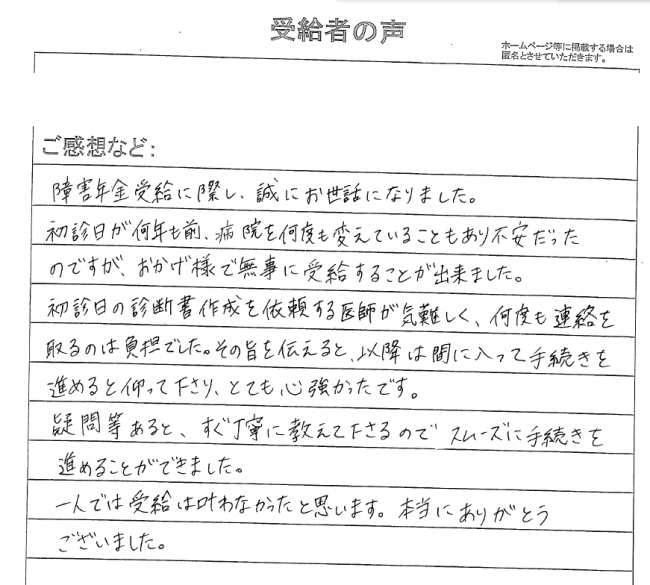 受給者の声
ホームページ等に掲載する場合は
匿名とさせていただきます。
ご感想など：
障害年金受給に際し、誠にお世話になりました。
初診日が何年も前、病院を何度も変えていることもあり不安だった
のですが、おかげ様で無事に受給することが出来ました。
初診日の診断書作成を依頼する医師が気難しく、何度も連絡を
取るのは負担でした。その旨を伝えると、以降は間に入って手続きを
進めると仰って下さり、とても心強かったです。
疑問等あると、すぐ丁寧に教えて下さるのでスムーズに手続きを
進めることができました。
一人では受給は叶わなかったと思います。本当にありがとう
ございました。